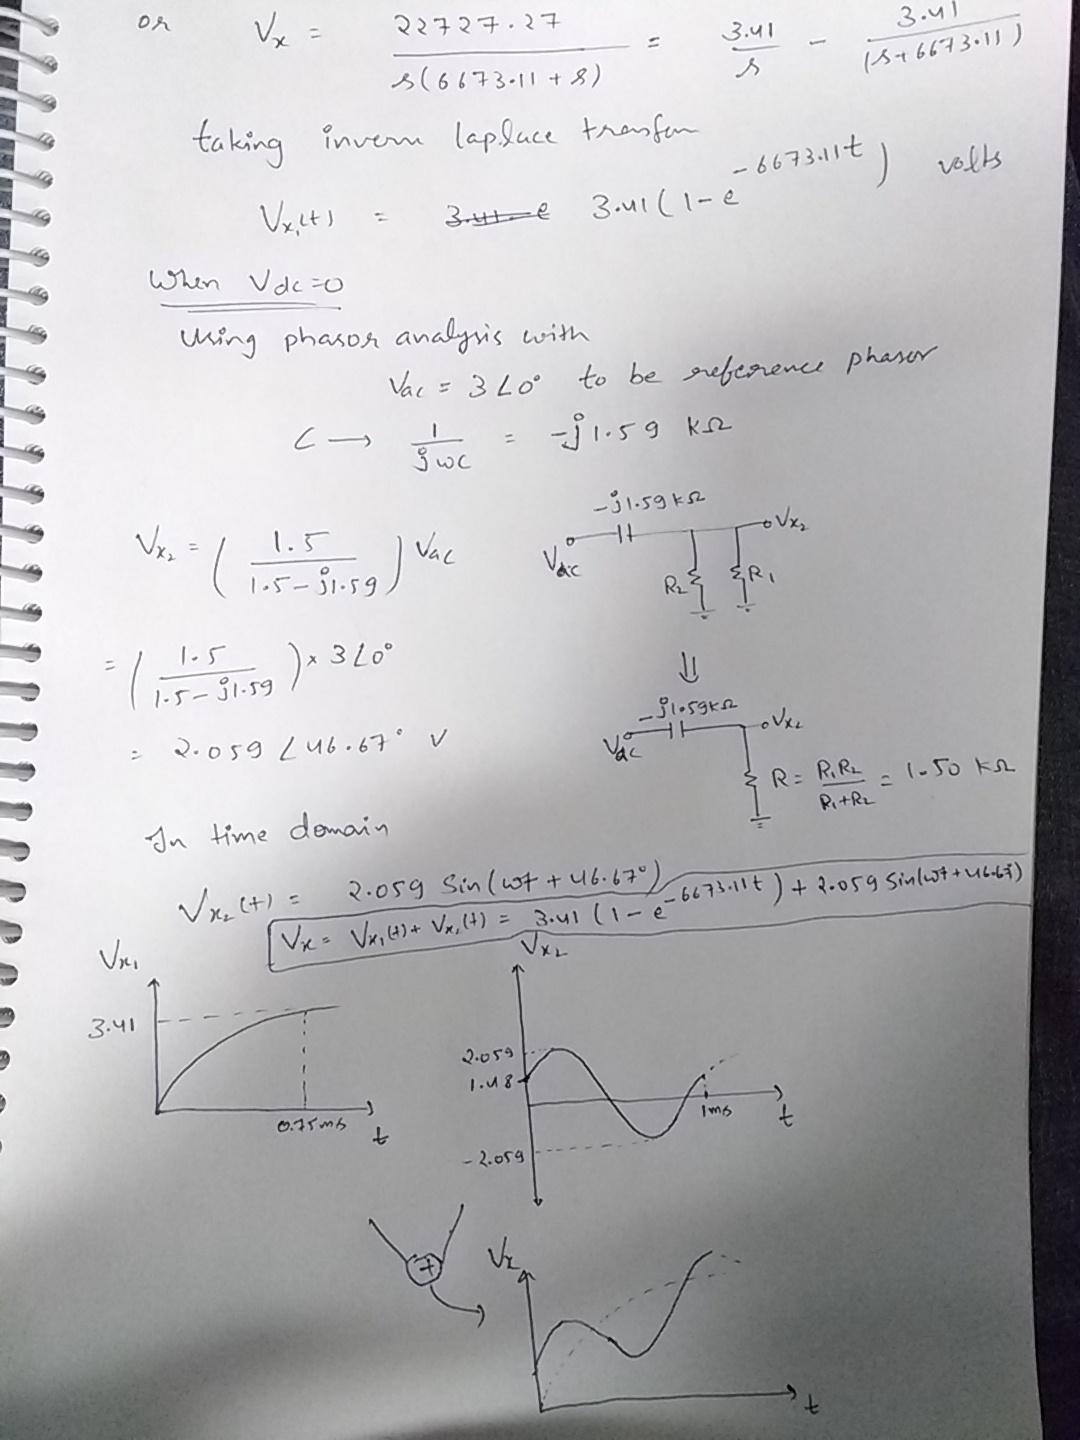 or Vx = 22727.27 / s(6673.11 + s) = 3.41/s - 3.41/(s+6673.11)
taking invern laplace transfon
Vx₁(t) = 3.41(1-e^-6673.11t) volts
When Vdc=0
Using phasor analysis with
Vac = 3∠0° to be reference phasor
C → 1/jωC = -j1.59 kΩ
-j1.59kΩ
Vx₂ = (1.5 / 1.5-j1.59) Vac
Vac
Vx₂
R₂
R₁
= (1.5 / 1.5-j1.59) × 3∠0°
⇓
-j1.59kΩ
= 2.059∠46.67° V
Vac
Vx₂
R = R₁R₂/R₁+R₂ = 1.50 kΩ
In time domain
Vx₂(t) = 2.059 Sin(ωt + 46.67°)
Vx = Vx₁(t) + Vx₂(t) = 3.41(1-e^-6673.11t) + 2.059 Sin(ωt+46.67)
Vx₁
3.41
0.75ms
t
Vx₂
2.059
1.48
-2.059
1ms
t
+
Vx
t